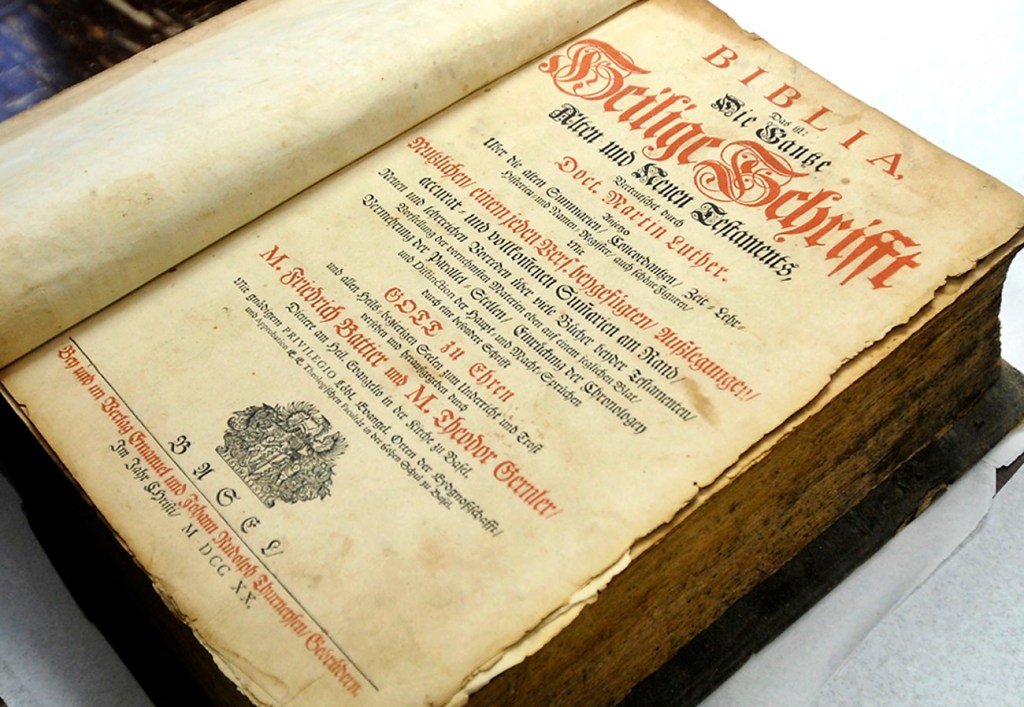 BIBLIA,
Das ist:
Die Gantze
Heilige Schrifft
Alten und Neuen Testaments,
Verteutschet durch
Doct. Martin Luther.
Anjezo
Über die alten Summarien / Concordantzen / Zeit- Lehr-
Historien- und Namen-Register / auch schöne Figuren /
Mit
Nutzlichen / einem jeden Vers. beygefügten / Außlegungen /
accurat- und vollkommenen Summarien am Rand /
Neuen und lehrreichen Vorreden über viele Bücher beyder Testamenten /
Vorstellung der vornehmsten Materien oben auf einem jeglichen Blat /
Vermehrung der Parallel-Stellen / Einrückung der Chronologey
und Distinction der Haupt- und Macht-Sprüchen
durch eine besondere Schrifft
GOTT zu Ehren
und allen Heils-begierigen Seelen zum Underricht und Trost
versehen und herausgegeben durch
M. Friedrich Battier und M. Theodor Gernler /
Diener am Heil. Evangelio in der Kirche zu Basel.
Mit gnädigem PRIVILEGIO Löbl. Evangel. Orten der Eydgnoßschafft /
und Approbation E. E. Theologischen Facultät in der hohen Schul zu Basel.
BASEL /
Bey und im Verlag Emanuel und Johann Rudolph Thurneysen / Gebrüdern.
Im Jahr Christi / M DCC XX.